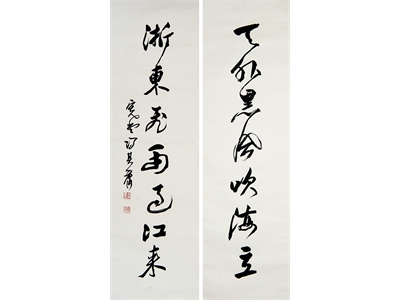 天外黑風吹海立
浙東飛雨過江來